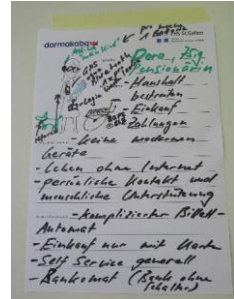 dormakaba
St.Gallen
Dora, 75ig
Pensionärin
- Haushalt
bestreiten
- Einkauf
- Zahlungen
- Keine modernen
Geräte
- Leben ohne Internet
- persönliche Kontakt und
menschliche Unterstützung
- komplizierter Billett-
Automat
- Einkauf nur mit Karte
- Self Service generell
- Bankomat (Bank ohne
Schalter)